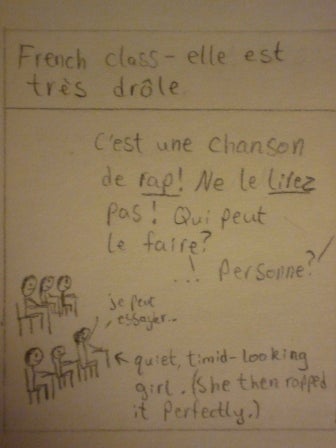 French class - elle est
très drôle
C'est une chanson
de rap! Ne le lirez
pas! Qui peut
le faire?
..! Personne?!
je peux
essayer...
quiet, timid-looking
girl. (She then rapped
it perfectly.)